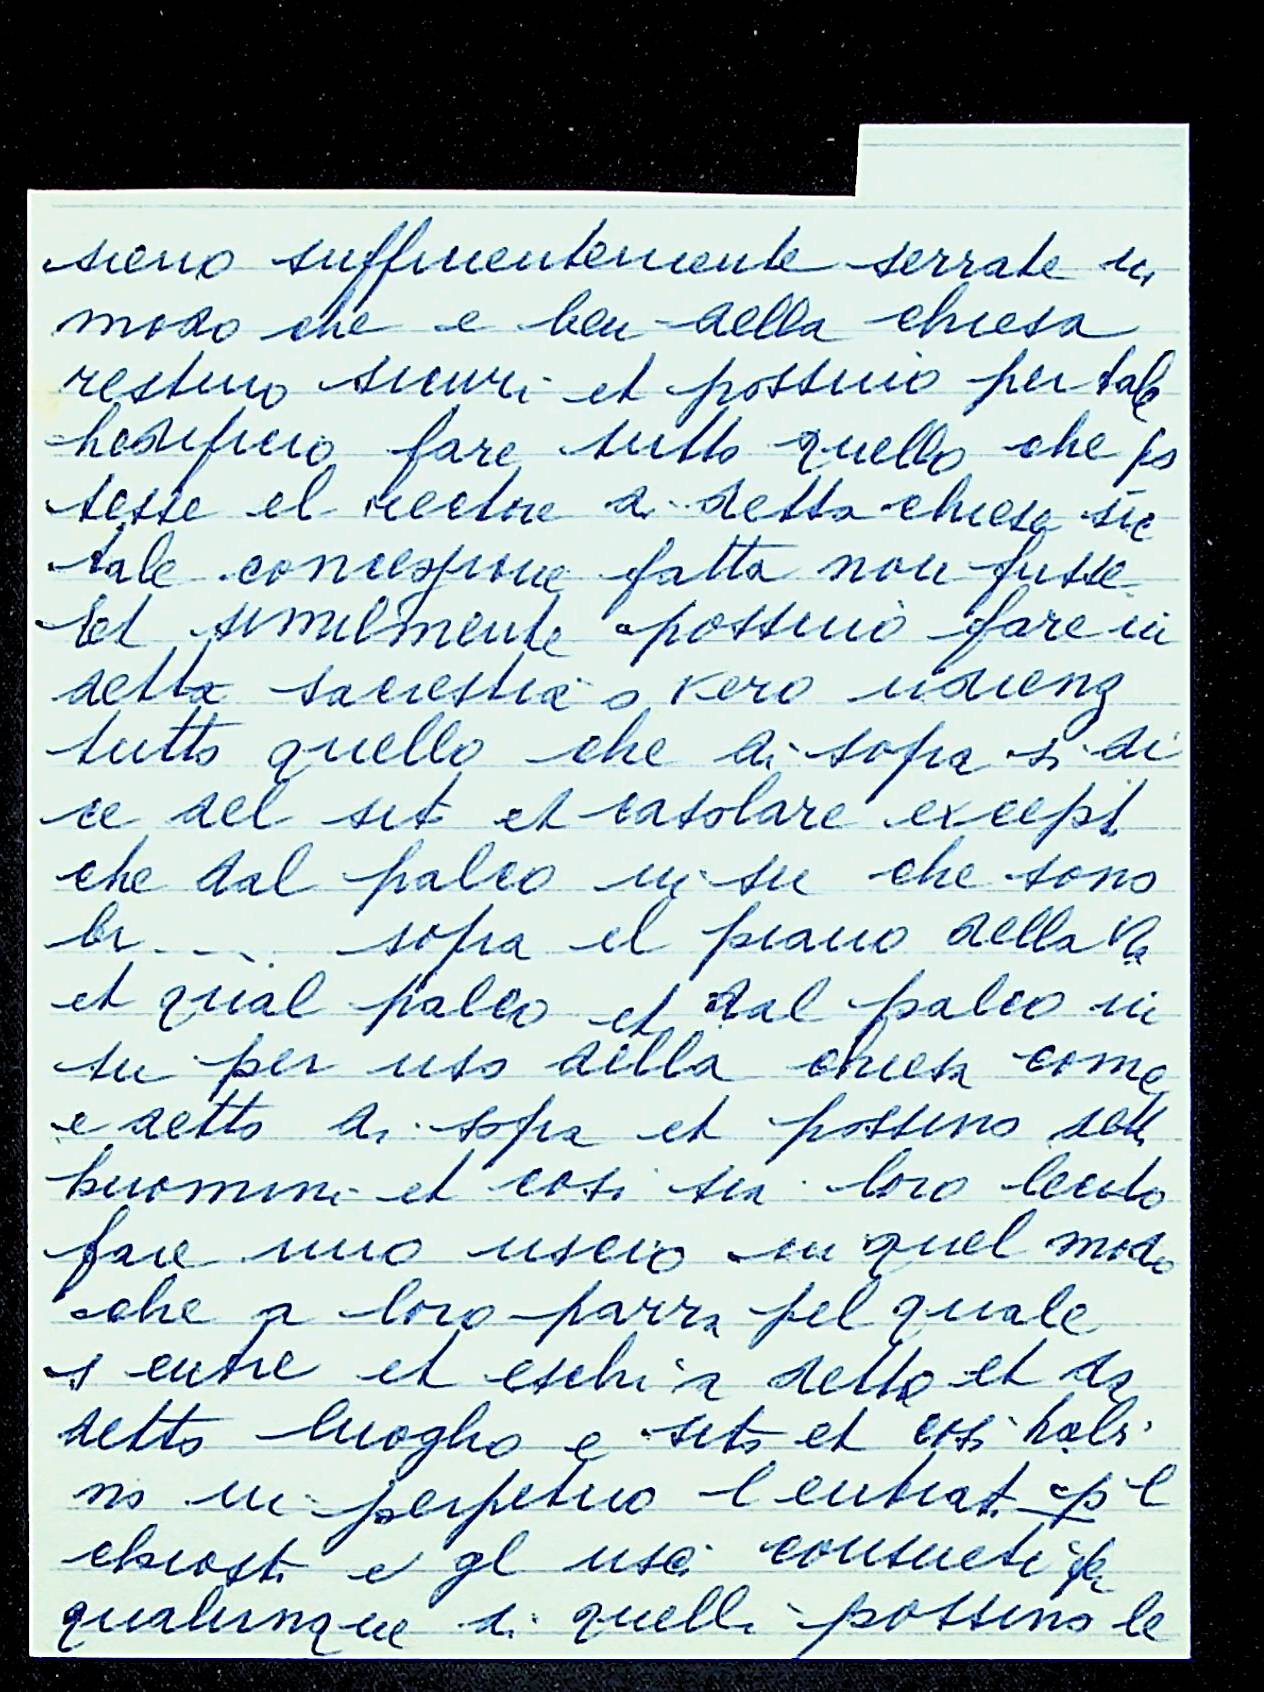 sieno sufficientemente serrate in
modo che e beni della chiesa
restino sicuri et possino per tale
hedificio fare tutto quello che po
tesse el rectore di detta chiesa se
tale concessione fatta non fusse
Et similmente possino fare in
detta sacrestia o vero udienz
tutto quello che di sopra si di
ce del sito et casolare except
che dal palco in su che sono
br... sopra el piano della
et qual palco et dal palco in
su per uso della chiesa come
e detto di sopra et possino detti
huomini et cosi sia loro lecito
fare uno uscio in quel modo
che a loro parra pel quale
s entre et eschi a detto et da
detto luogho e sito et cosi habi
no in perpetuo l entrat p l
chiostr e gl usci consueti
qualunque di quelli possino le